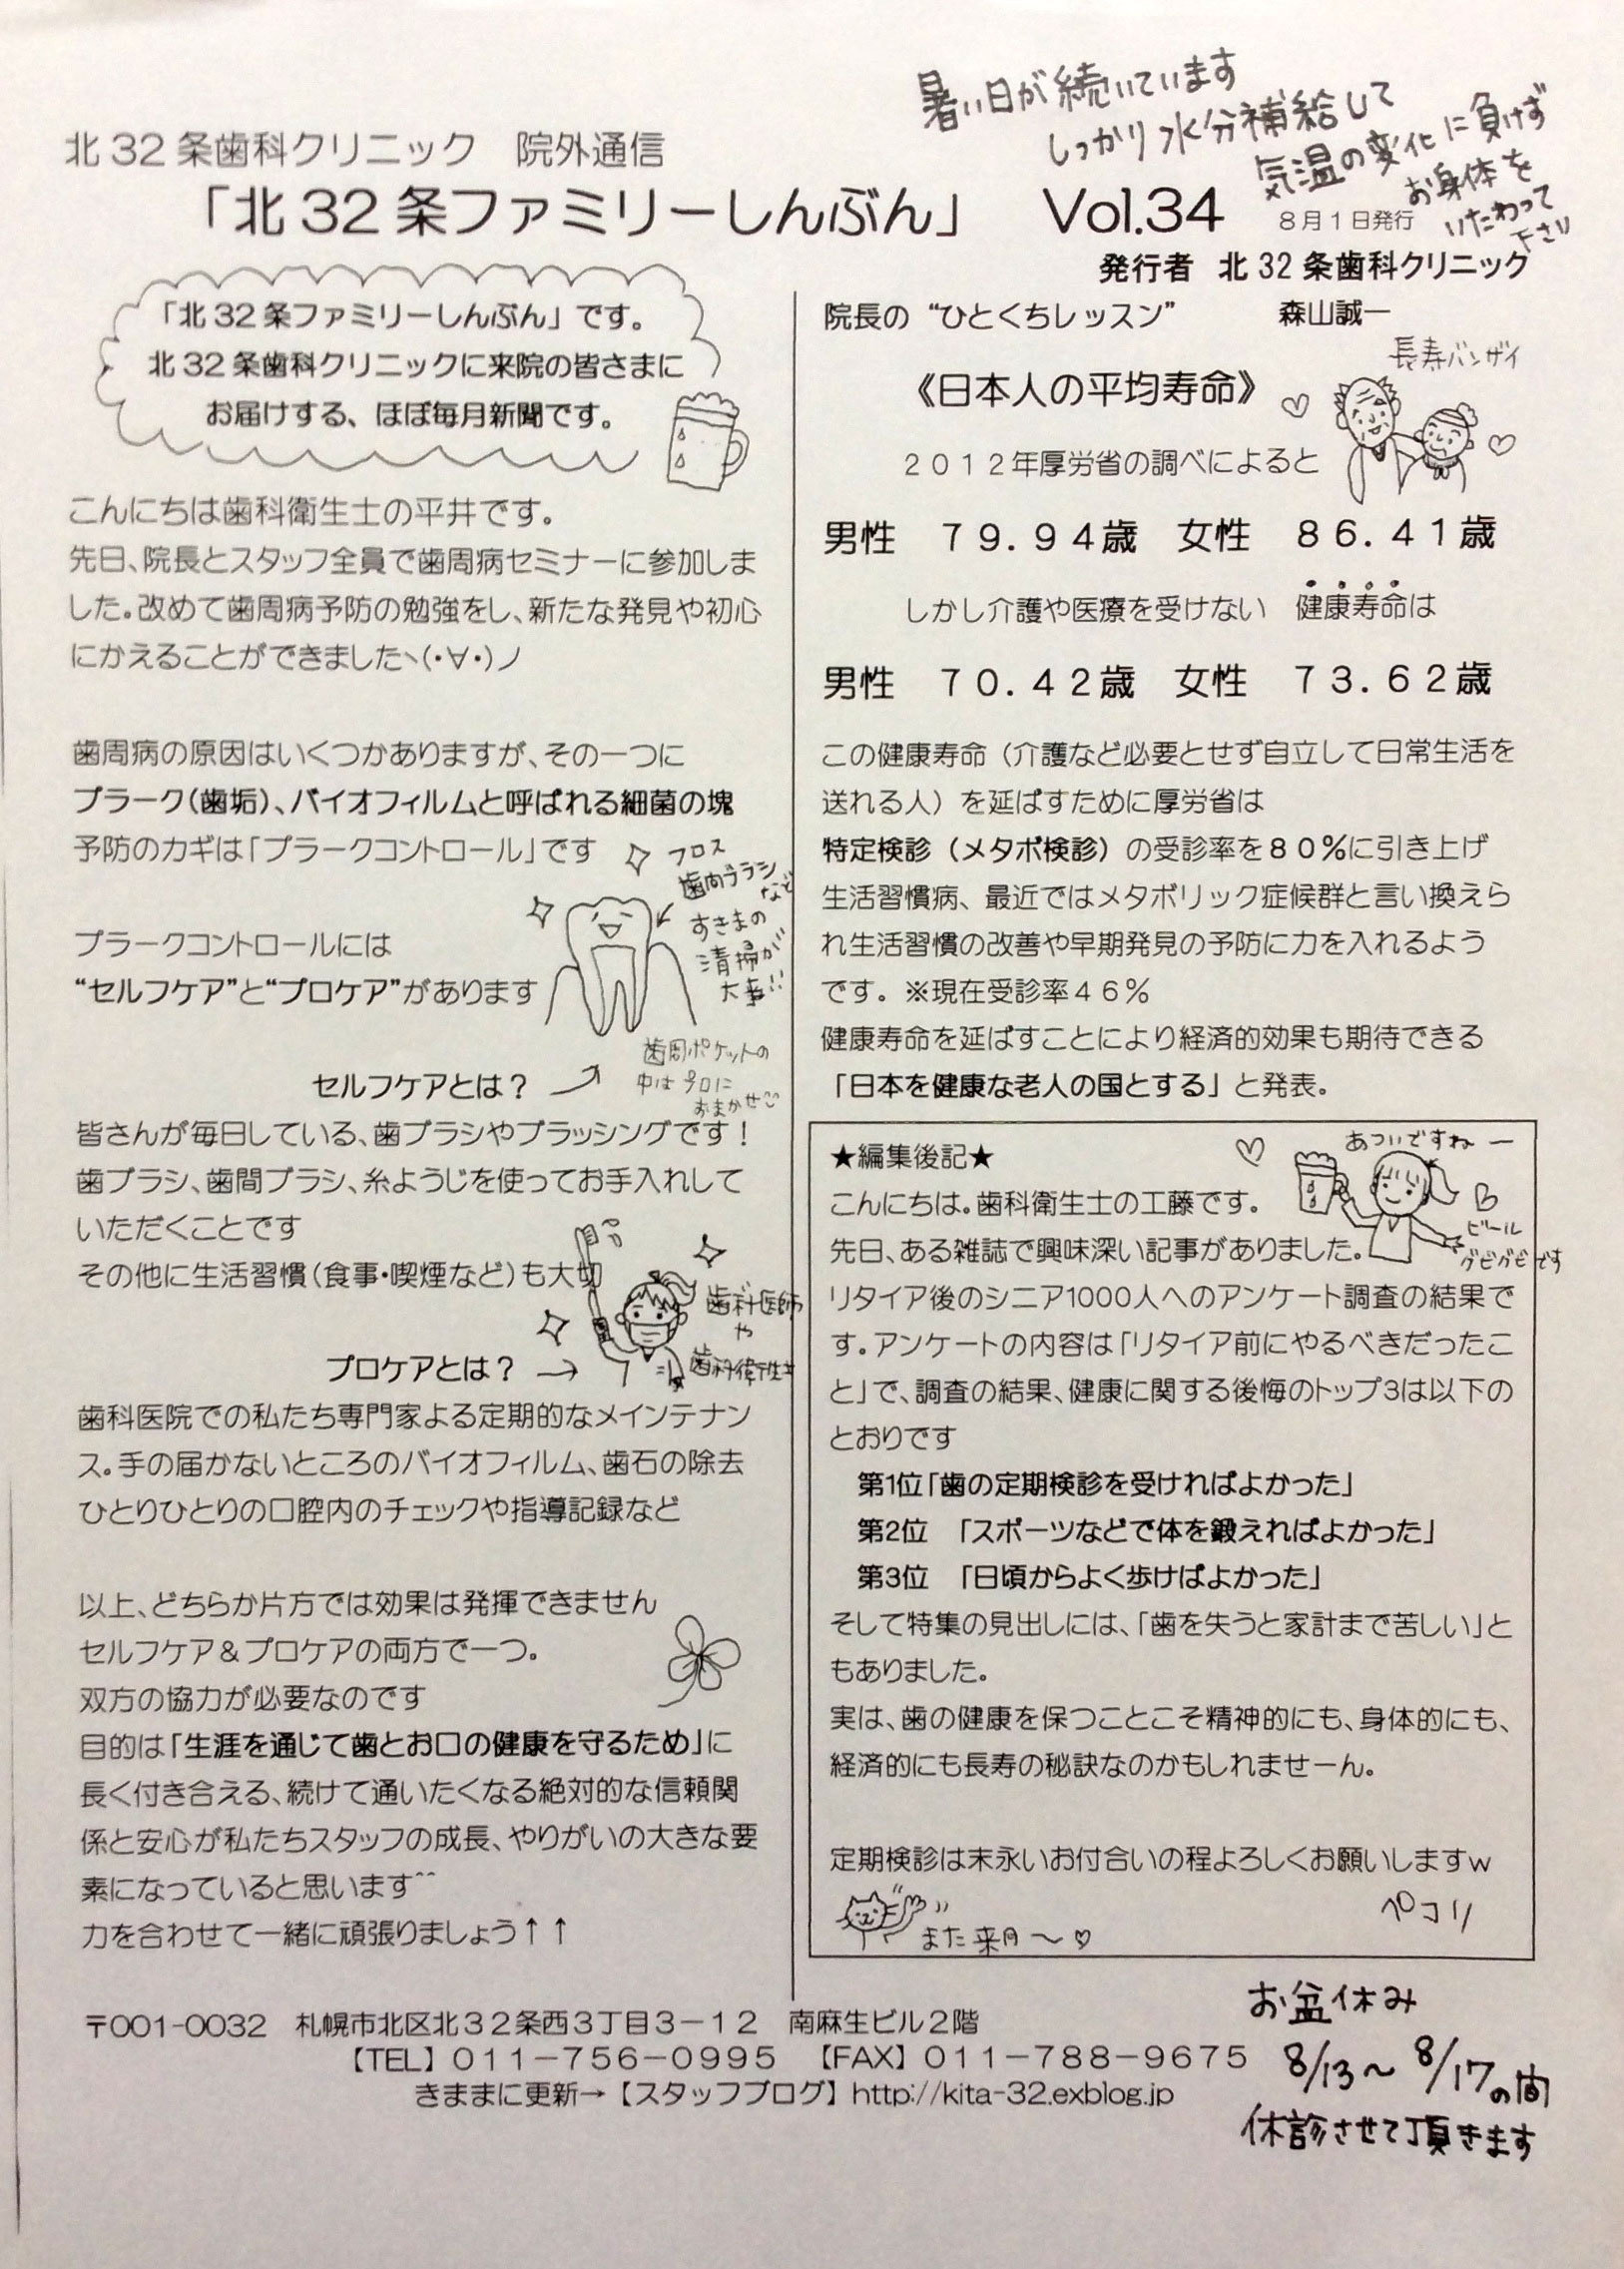 暑い日が続いています
しっかり水分補給して
気温の変化に負けず
お身体を
いたわって
下さい
北32条歯科クリニック　院外通信
「北32条ファミリーしんぶん」　Vol.34　8月1日発行
発行者　北32条歯科クリニック
「北32条ファミリーしんぶん」です。
北32条歯科クリニックに来院の皆さまに
お届けする、ほぼ毎月新聞です。
こんにちは歯科衛生士の平井です。
先日、院長とスタッフ全員で歯周病セミナーに参加しま
した。改めて歯周病予防の勉強をし、新たな発見や初心
にかえることができましたヽ(・∀・)ノ
歯周病の原因はいくつかありますが、その一つに
プラーク(歯垢)、バイオフィルムと呼ばれる細菌の塊
予防のカギは「プラークコントロール」です
フロス
歯間ブラシ
など
すきまの
清掃が
大事!!
プラークコントロールには
“セルフケア”と“プロケア”があります
歯周ポケットの
中はプロに
おまかせ
セルフケアとは？
皆さんが毎日している、歯ブラシやブラッシングです！
歯ブラシ、歯間ブラシ、糸ようじを使ってお手入れして
いただくことです
その他に生活習慣(食事・喫煙など)も大切
歯科医師
や
歯科衛生士
プロケアとは？→
歯科医院での私たち専門家よる定期的なメインテナン
ス。手の届かないところのバイオフィルム、歯石の除去
ひとりひとりの口腔内のチェックや指導記録など
以上、どちらか片方では効果は発揮できません
セルフケア＆プロケアの両方で一つ。
双方の協力が必要なのです
目的は「生涯を通じて歯とお口の健康を守るため」に
長く付き合える、続けて通いたくなる絶対的な信頼関
係と安心が私たちスタッフの成長、やりがいの大きな要
素になっていると思います^^
力を合わせて一緒に頑張りましょう↑↑
院長の“ひとくちレッスン”　森山誠一
長寿バンザイ
《日本人の平均寿命》
２０１２年厚労省の調べによると
男性　７９．９４歳　女性　８６．４１歳
しかし介護や医療を受けない　健康寿命は
男性　７０．４２歳　女性　７３．６２歳
この健康寿命（介護など必要とせず自立して日常生活を
送れる人）を延ばすために厚労省は
特定検診（メタボ検診）の受診率を８０％に引き上げ
生活習慣病、最近ではメタボリック症候群と言い換えら
れ生活習慣の改善や早期発見の予防に力を入れるよう
です。※現在受診率４６％
健康寿命を延ばすことにより経済的効果も期待できる
「日本を健康な老人の国とする」と発表。
★編集後記★
あついですねー
ビール
グビグビです
こんにちは。歯科衛生士の工藤です。
先日、ある雑誌で興味深い記事がありました。
リタイア後のシニア1000人へのアンケート調査の結果で
す。アンケートの内容は「リタイア前にやるべきだったこ
と」で、調査の結果、健康に関する後悔のトップ3は以下の
とおりです
第1位「歯の定期検診を受ければよかった」
第2位　「スポーツなどで体を鍛えればよかった」
第3位　「日頃からよく歩けばよかった」
そして特集の見出しには、「歯を失うと家計まで苦しい」と
もありました。
実は、歯の健康を保つことこそ精神的にも、身体的にも、
経済的にも長寿の秘訣なのかもしれませーん。
定期検診は末永いお付合いの程よろしくお願いしますw
ペコリ
また来月〜♡
〒001-0032　札幌市北区北３２条西３丁目３－１２　南麻生ビル２階
【TEL】０１１－７５６－０９９５　【FAX】０１１－７８８－９６７５
きままに更新→【スタッフブログ】http://kita-32.exblog.jp
お盆休み
8/13〜8/17の間
休診させて頂きます